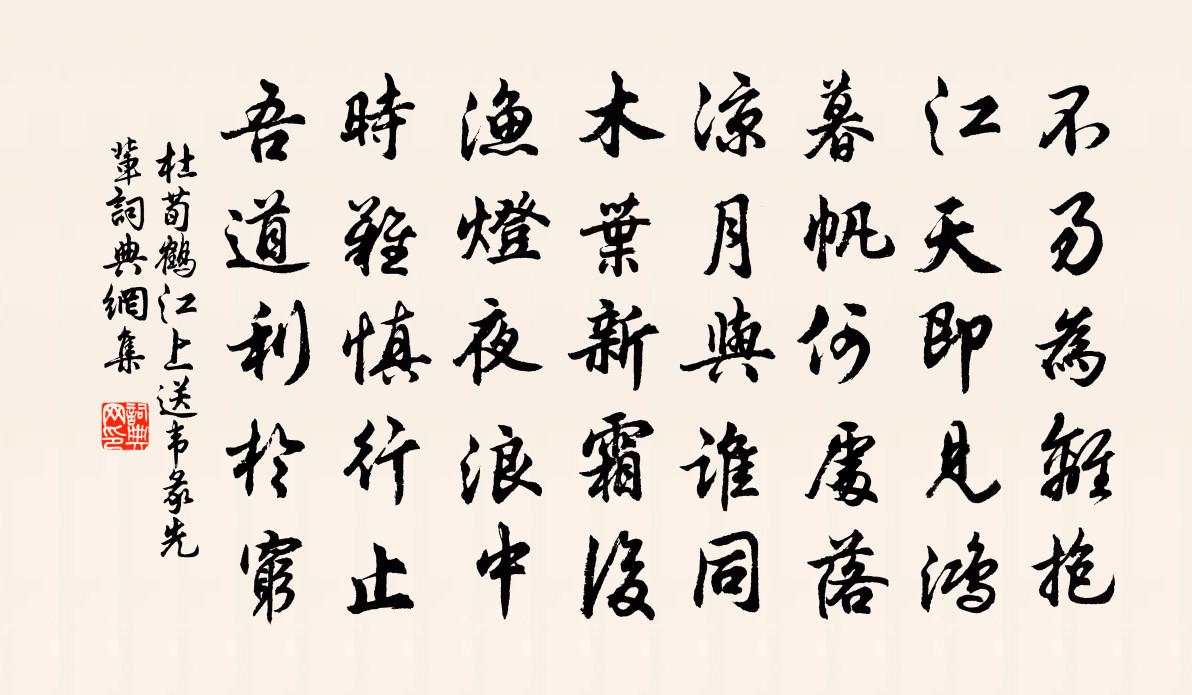 不易為離抱
江天即見鴻
暮帆何處落
涼月與誰同
木葉新霜後
漁燈夜浪中
時難慎行止
吾道利於窮
杜荀鶴江上送韦彖先
輩詞典網集
詞典
网印